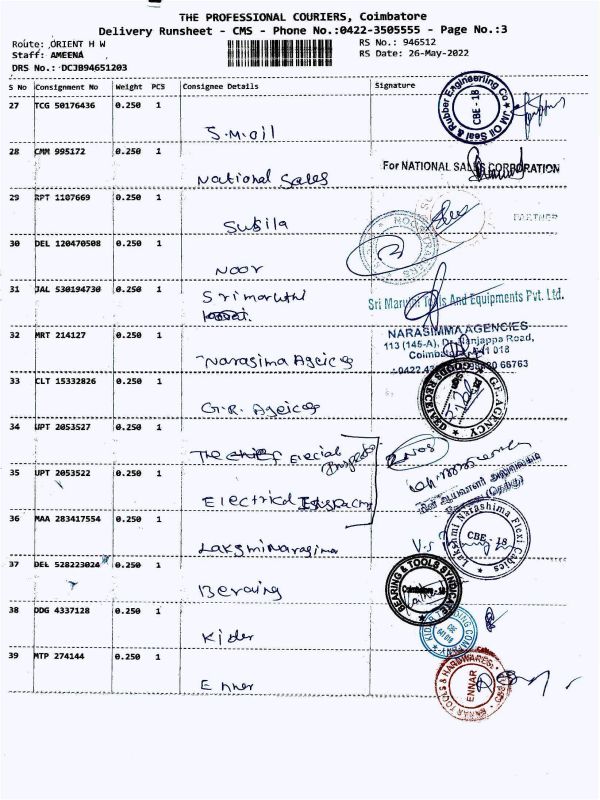 THE PROFESSIONAL COURIERS, Coimbatore
Delivery Runsheet - CMS - Phone No.:0422-3505555 - Page No.:3
Route: ORIENT H W
RS No.: 946512
Staff: AMEENA
RS Date: 26-May-2022
DRS No.: DCJB94651203
S No Consignment No Weight PCS Consignee Details Signature
27 TCG 50176436 0.250 1
S.M.oil
JM Oil Seal & Rubber Engineering Co CBE - 18
28 CMM 995172 0.250 1
National Sales
For NATIONAL SALES CORPORATION
29 RPT 1107669 0.250 1
Susila
PARTNER
30 DEL 120470508 0.250 1
Noor
NOOR TRADERS
31 JAL 530194730 0.250 1
Srimaruthi
Sri Maruthi Tools And Equipments Pvt. Ltd.
32 MRT 214127 0.250 1
Narasima Ageices
NARASIMMA AGENCIES
113 (145-A), Dr. Nanjappa Road,
Coimbatore - 641 018
33 CLT 15332826 0.250 1
G.R. Ageices
G.F. AGENCY GOODS RECEIVED
34 UPT 2053527 0.250 1
The chief Elecial
2 Nos
35 UPT 2053522 0.250 1
Electrical Inspactor
36 MAA 283417554 0.250 1
Laksminarasima
Lakshmi Narashima Flexi Cables CBE - 18
37 DEL 528223024 0.250 1
Beraing
BEARING & TOOLS SYNDICATE Coimbatore-18
38 DDG 4337128 0.250 1
Kider
39 MTP 274144 0.250 1
Enner
ENNAR TOOLS & HARDWARES ENNAR